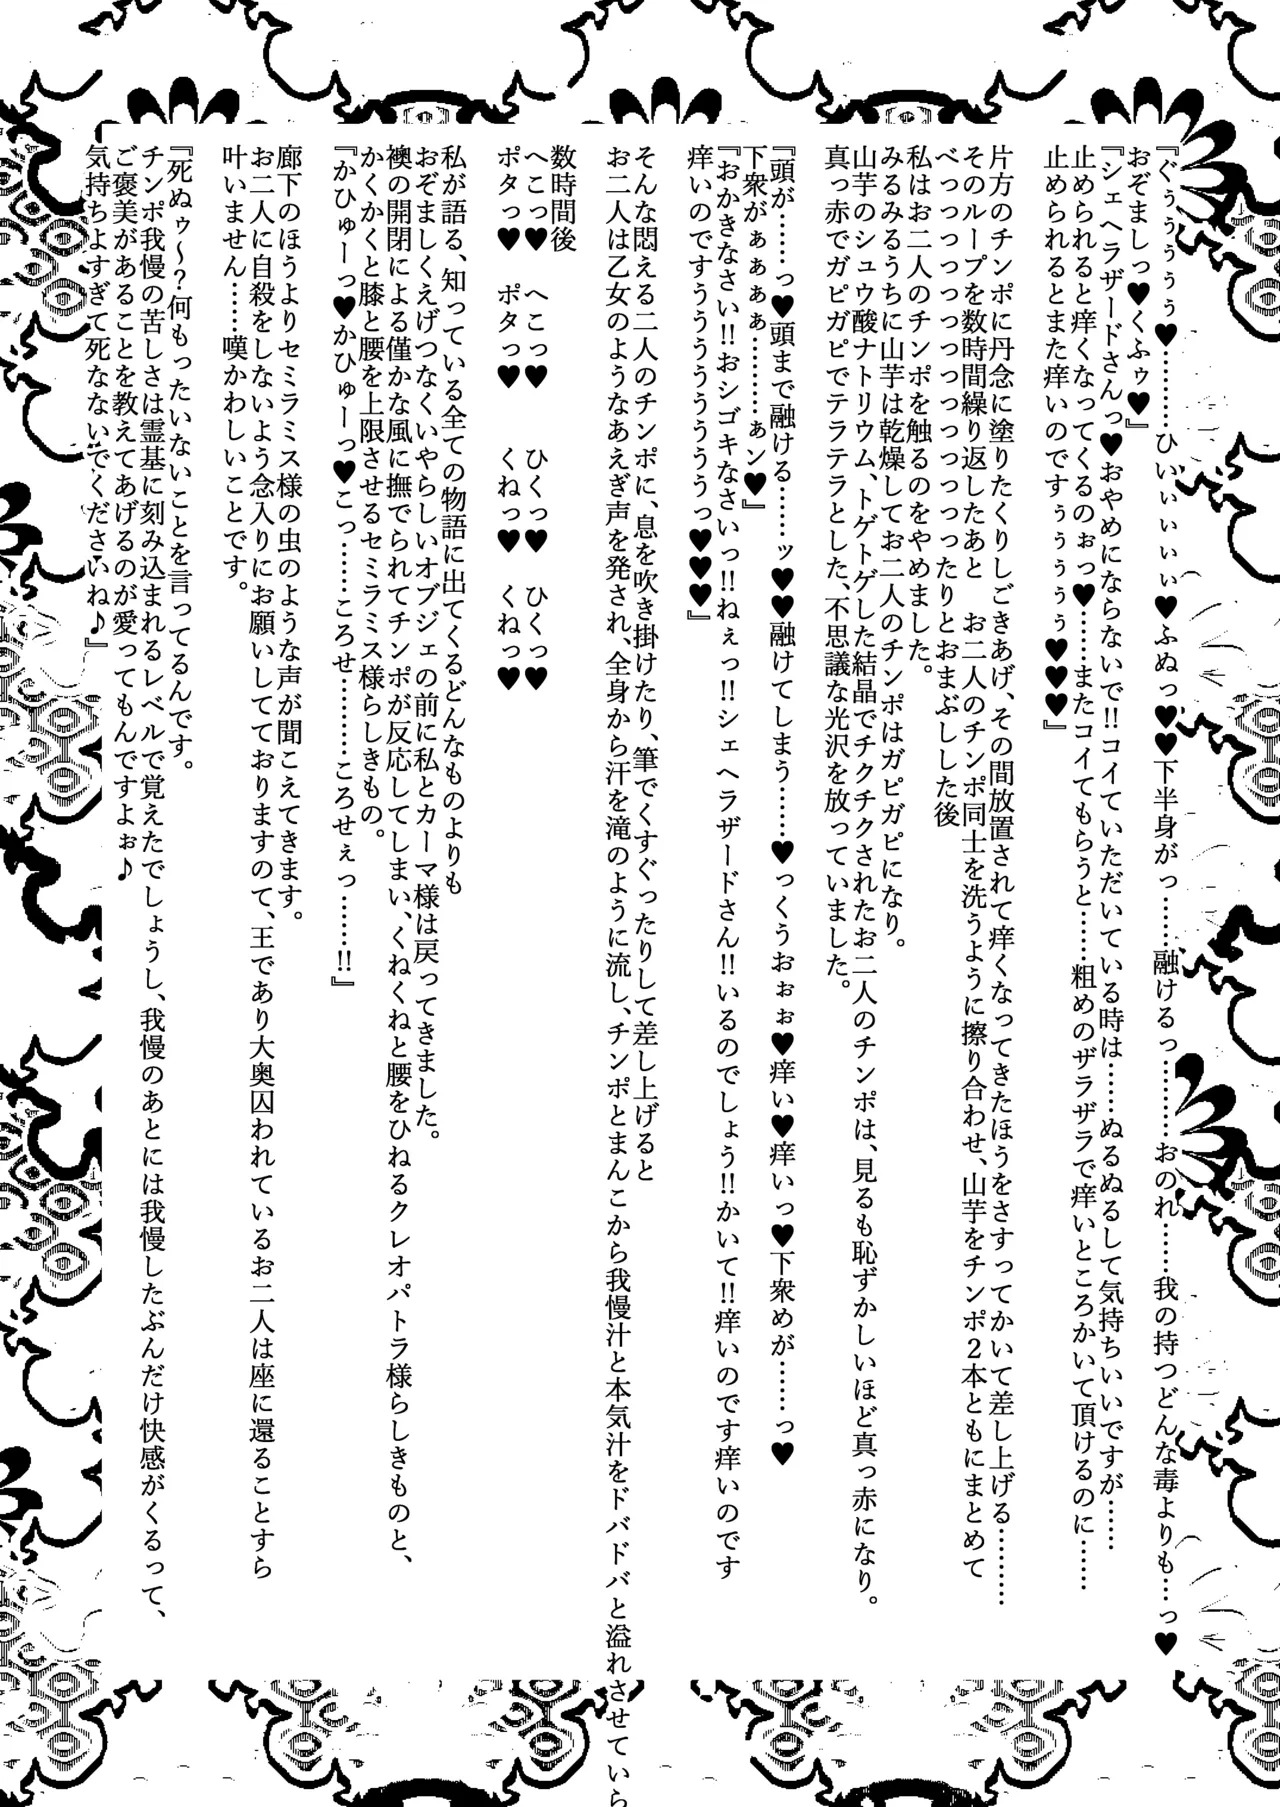 『ぐぅぅぅぅぅ♥………ひいぃぃぃぃ♥ふぬっ♥♥下半身がっ……融けるっ………おのれ……我の持つどんな毒よりも…っ♥
おぞましっ♥くふゥ♥』
『シェヘラザードさんっ♥おやめにならないで!!コイていただいている時は……ぬるぬるして気持ちいいですが……
止められると痒くなってくるのぉっ♥……またコイてもらうと……粗めのザラザラで痒いところかいて頂けるのに……
止められるとまた痒いのですぅぅぅぅぅ♥♥♥』
片方のチンポに丹念に塗りたくりしごきあげ、その間放置されて痒くなってきたほうをさすってかいて差し上げる………
そのループを数時間繰り返したあと　お二人のチンポ同士を洗うように擦り合わせ、山芋をチンポ２本ともにまとめて
べっっっっっっっっっっっっったりとおまぶしした後
私はお二人のチンポを触るのをやめました。
みるみるうちに山芋は乾燥してお二人のチンポはガピガピになり。
山芋のシュウ酸ナトリウム、トゲトゲした結晶でチクチクされたお二人のチンポは、見るも恥ずかしいほど真っ赤になり。
真っ赤でガピガピでテラテラとした、不思議な光沢を放っていました。
『頭が……っ♥頭まで融ける……ッ♥♥融けてしまう……♥っくうおぉぉ♥痒い♥痒いっ♥下衆めが……っ♥
下衆がぁぁぁぁ………ぁン♥』
『おかきなさい!!おシゴキなさいっ!!ねぇっ!!シェヘラザードさん!!いるのでしょう!!かいて!!痒いのです痒いのです
痒いのですううううううううっ♥♥♥』
そんな悶える二人のチンポに、息を吹き掛けたり、筆でくすぐったりして差し上げると
お二人は乙女のようなあえぎ声を発され、全身から汗を滝のように流し、チンポとまんこから我慢汁と本気汁をドバドバと溢れさせていら
数時間後
へこっ♥　へこっ♥　　ひくっ♥　ひくっ♥
ポタっ♥　ポタっ♥　　くねっ♥　くねっ♥
私が語る、知っている全ての物語に出てくるどんなものよりも
おぞましくえげつなくいやらしいオブジェの前に私とカーマ様は戻ってきました。
襖の開閉による僅かな風に撫でられてチンポが反応してしまい、くねくねと腰をひねるクレオパトラ様らしきものと、
かくかくと膝と腰を上限させるセミラミス様らしきもの。
『かひゅーっ♥かひゅーっ♥こっ……ころせ………ころせぇっ……!!』
廊下のほうよりセミラミス様の虫のような声が聞こえてきます。
お二人に自殺をしないよう念入りにお願いしてておりますのて、王であり大奥囚われているお二人は座に還ることすら
叶いません……嘆かわしいことです。
『死ぬゥ～?何もったいないことを言ってるんです。
チンポ我慢の苦しさは霊基に刻み込まれるレベルで覚えたでしょうし、我慢のあとには我慢したぶんだけ快感がくるって、
ご褒美があることを教えてあげるのが愛ってもんですよぉ♪
気持ちよすぎて死なないでくださいね♪』